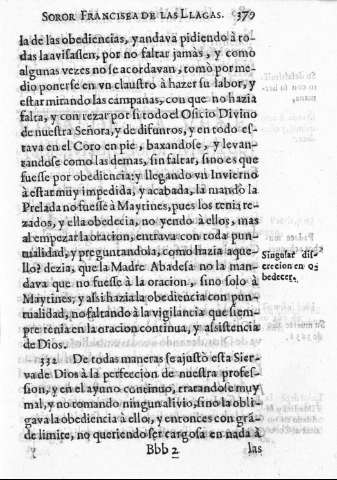 SOROR FRANCISEA DE LAS LLAGAS. 379
la de las obediencias, y andava pidiendo à to-
das la avisassen, por no faltar jamàs, y como
algunas vezes no se acordavan, tomò por me-
dio ponerse en vn claustro à hazer su labor, y
estar mirando las campañas, con que no hazia
falta, y con rezar por si todo el Oficio Divino
de nuestra Señora, y de difunros, y en todo es-
tava en el Coro en pie, baxandose, y levan-
tandose como las demas, sin faltar, sino es que
fuesse por obediencia: y llegando vn Invierno
à estar muy impedida, y acabada, la mandò la
Prelada no fuesse à Maytines, pues los tenia re-
zados, y ella obedecia, no yendo à ellos, mas
al empezar la oracion, entrava con toda pun-
tualidad, y preguntandola, como hazia aque-
llo? dezia, que la Madre Abadesa no la man-
dava que no fuesse à la oracion, sino solo à
Maytines, y assi hazia la obediencia con pun-
tualidad, no faltando à la vigilancia que siem-
pre tenia en la oracion continua, y assistencia
de Dios.
Singular dis-
crecion en o-
bedecer.
332 De todas maneras se ajustò esta Sier-
va de Dios à la perfeccion de nuestra profes-
sion, y en el ayuno continuo, tratandose muy
mal, y no tomando ningun alivio, sino la obli-
gava la obediencia à ello, y entonces con grã-
de limite, no queriendo ser cargosa en nada à
Bbb 2 las